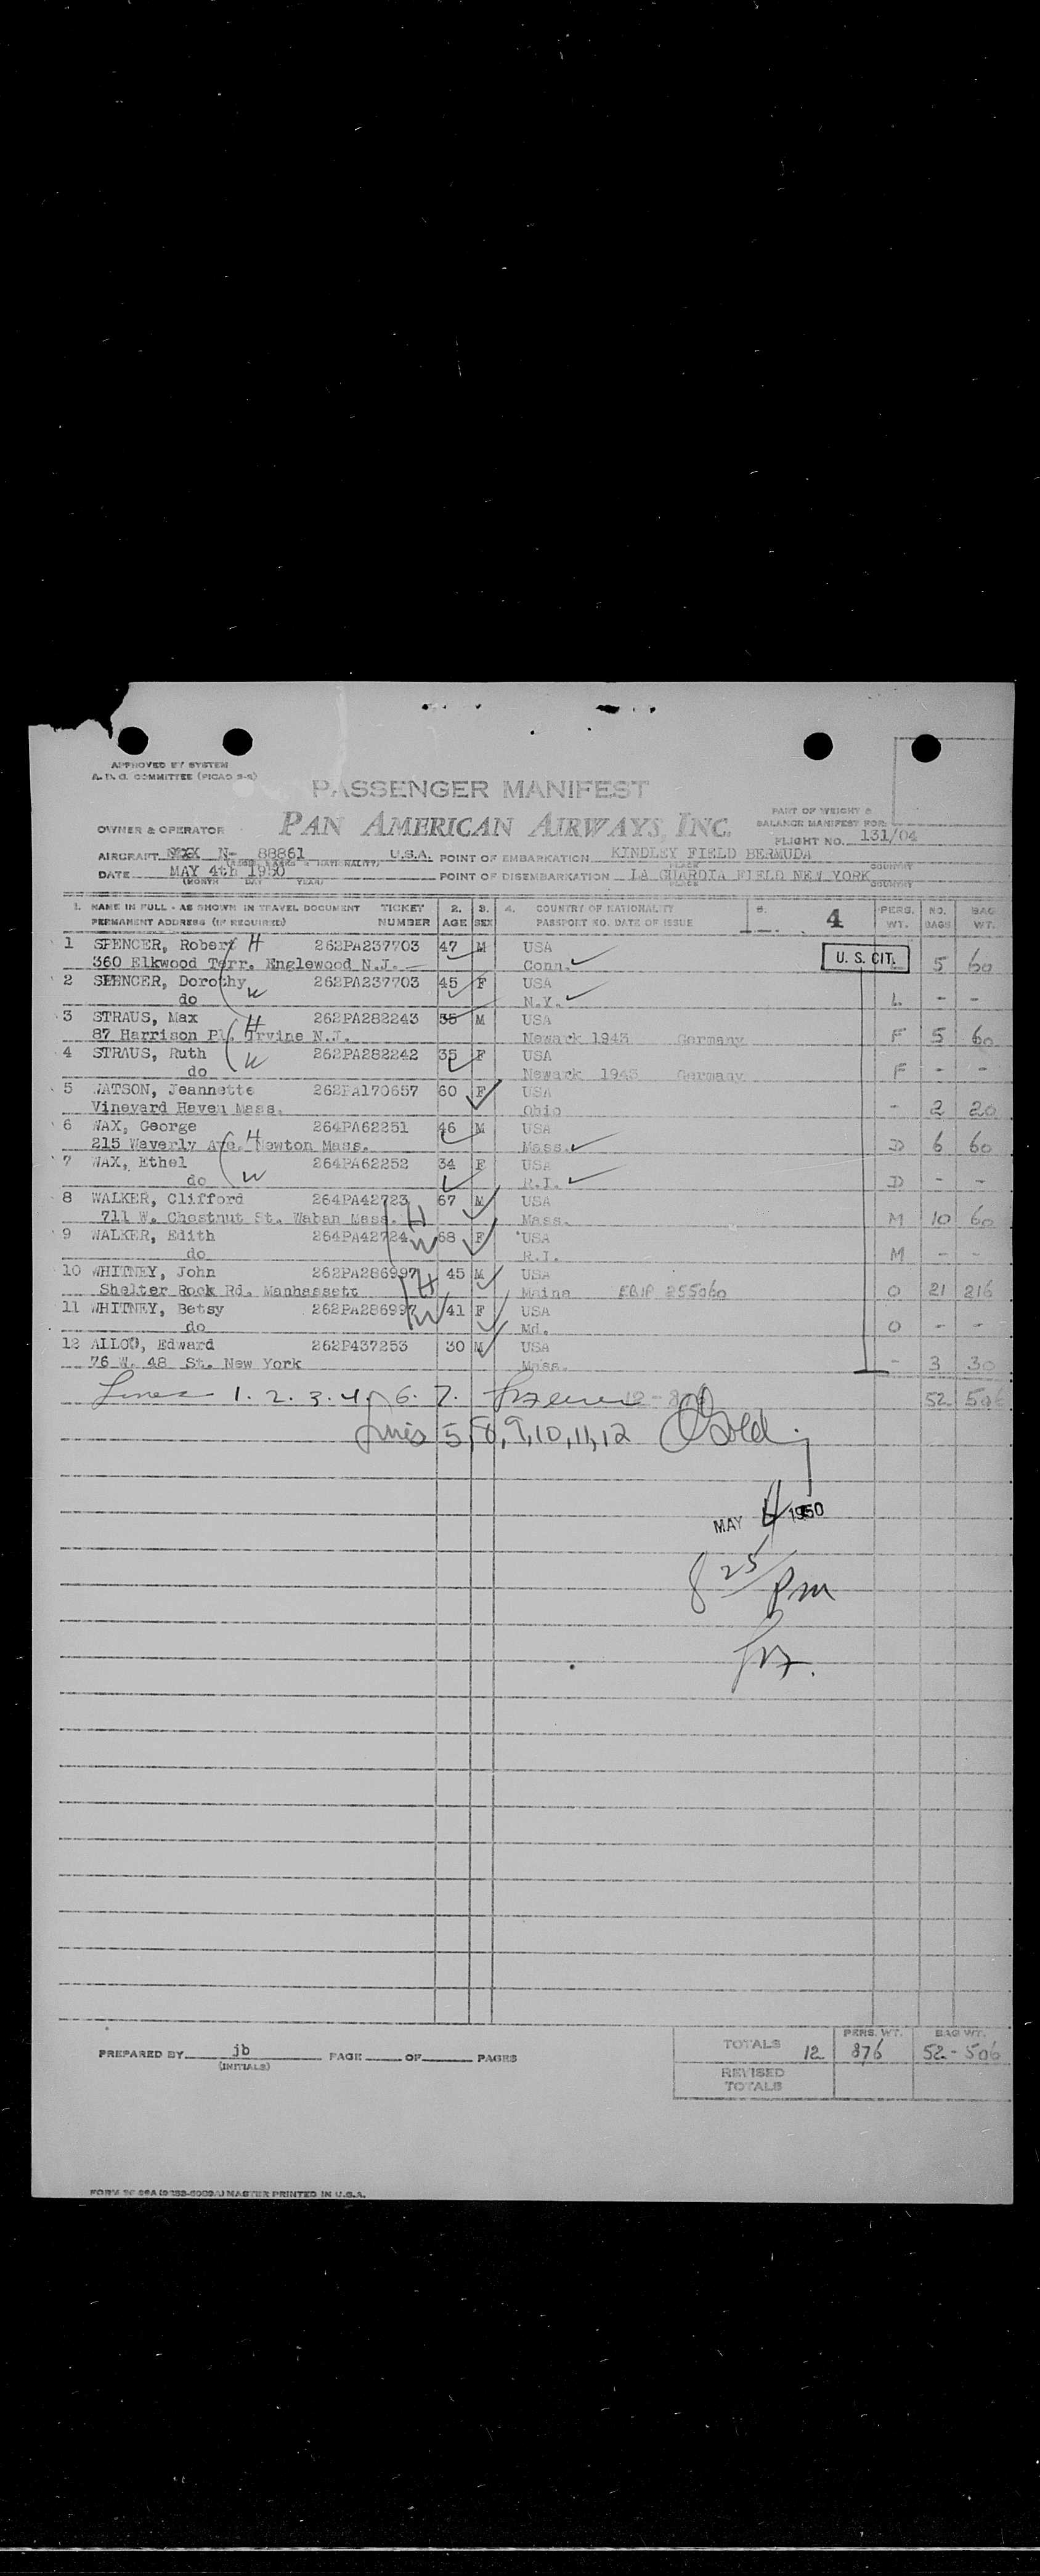 APPROVED BY SYSTEM
A. D. G. COMMITTEE (PICAO 9-2)
PASSENGER MANIFEST
PART OF WEIGHT &
BALANCE MANIFEST FOR
OWNER & OPERATOR PAN AMERICAN AIRWAYS, INC. FLIGHT NO. 131/04
AIRCRAFT N- 88861 U.S.A. POINT OF EMBARKATION KINDLEY FIELD BERMUDA
PLACE COUNTRY
DATE MAY 4th 1950 POINT OF DISEMBARKATION LA GUARDIA FIELD NEW YORK
(MONTH DAY YEAR) PLACE COUNTRY
1. NAME IN FULL - AS SHOWN IN TRAVEL DOCUMENT TICKET 2. 3. 4. COUNTRY OF NATIONALITY 5. 4 PERS. NO. BAG
PERMANENT ADDRESS (IF REQUIRED) NUMBER AGE SEX PASSPORT NO. DATE OF ISSUE WT. BAGS WT.
1 SPENCER, Robert H 262PA237703 47 M USA U. S. CIT.
360 Elkwood Terr. Englewood N.J. Conn. 5 60
2 SPENCER, Dorothy W 262PA237703 45 F USA
do N.Y. L - -
3 STRAUS, Max H 262PA282243 35 M USA
87 Harrison Pl. Irvine N.J. Newark 1943 Germany F 5 60
4 STRAUS, Ruth W 262PA282242 35 F USA
do Newark 1943 Germany F - -
5 WATSON, Jeannette 262PA170657 60 F USA
Vineyard Haven Mass. Ohio - 2 20
6 WAX, George H 264PA62251 46 M USA
215 Waverly Ave. Newton Mass. Mass. D 6 60
7 WAX, Ethel W 264PA62252 34 F USA
do R.I. D - -
8 WALKER, Clifford 264PA42723 67 M USA
711 W. Chestnut St. Waban Mass. H Mass. M 10 60
9 WALKER, Edith 264PA42724 W 68 F USA
do R.I. M - -
10 WHITNEY, John 262PA286997 H 45 M USA
Shelter Rock Rd. Manhassett Maine 255060 O 21 216
11 WHITNEY, Betsy 262PA286997 W 41 F USA
do Md. O - -
12 ALLOO, Edward 262P437253 30 M USA
76 W. 48 St. New York Mass. - 3 30
Lines 1. 2. 3. 4. 6. 7. 52 506
Lines 5, 8, 9, 10, 11, 12
MAY 4 1950
8 25 Pm
PREPARED BY jb PAGE OF PAGES
(INITIALS)
PERS. WT. BAG WT.
TOTALS 12 876 52 - 506
REVISED
TOTALS
MASTER PRINTED IN U.S.A.